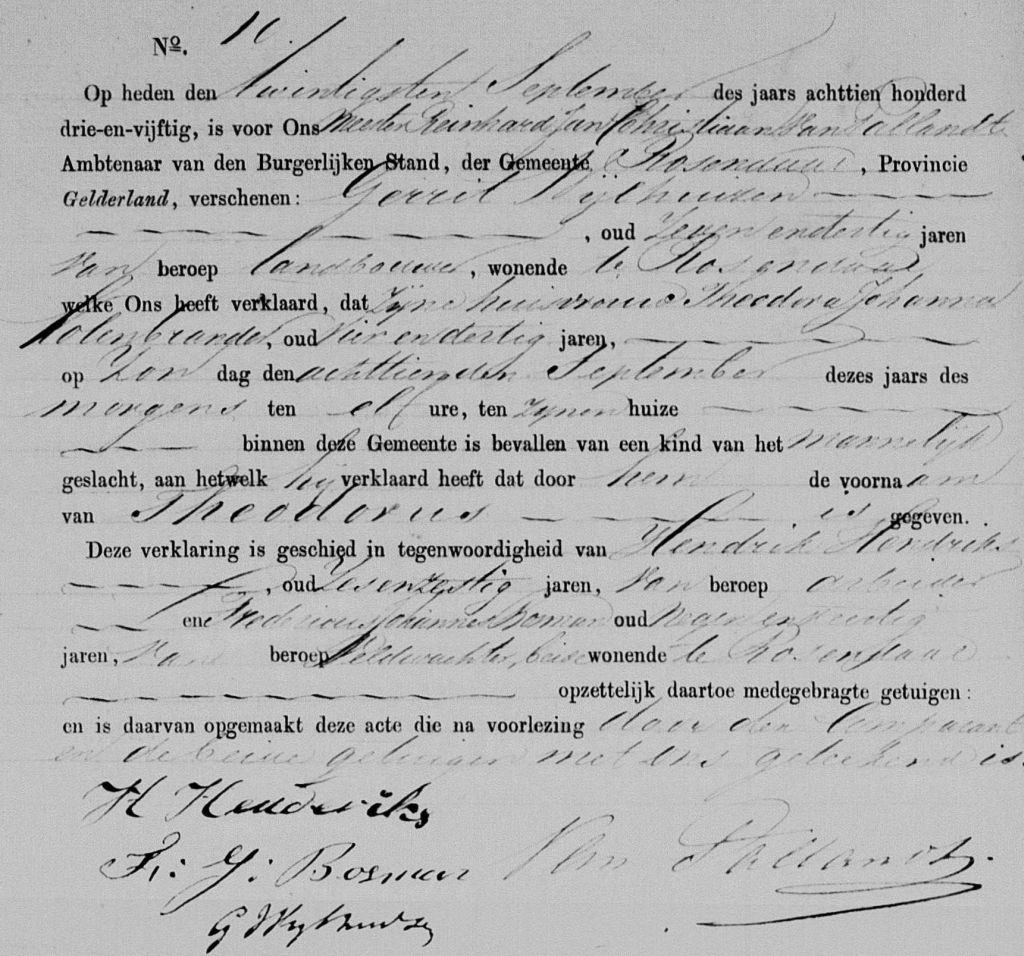 Nº. 10.
Op heden den twintigsten September des jaars achttien honderd
drie-en-vijftig, is voor Ons Meester Reinhard Jan Christiaan Van Pallandt
Ambtenaar van den Burgerlijken Stand, der Gemeente Rosendaal, Provincie
Gelderland, verschenen: Gerrit
, oud Zeven endertig jaren
Van beroep Landbouwer, wonende te Rosendaal
welke Ons heeft verklaard, dat Zijne huisvrouw Theodora Johanna
Kolenbrander, oud Vier endertig jaren,
op Zon dag den achttienden September dezes jaars des
morgens ten elf ure, ten zynen huize
binnen deze Gemeente is bevallen van een kind van het mannelijk
geslacht, aan hetwelk hij verklaard heeft dat door hem de voornaam
van Theodorus is gegeven.
Deze verklaring is geschied in tegenwoordigheid van Hendrik Hendriks
, oud Zesenzestig jaren, Van beroep arbeider
ene Fredericus Johannes Bosman oud Negen enveertig
jaren, Van beroep Veldwachter, beide wonende te Rosendaal
opzettelijk daartoe medegebragte getuigen:
en is daarvan opgemaakt deze acte die na voorlezing door den Comparant
en de beide getuigen met ons geteekend is.
H Henderiks
Fr: J: Bosman Van Pallandt.